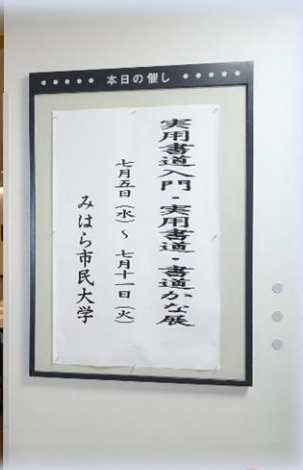 本日の催し
実用書道入門・実用書道・書道かな展
七月五日（水）～七月十一日（火）
みはら市民大学